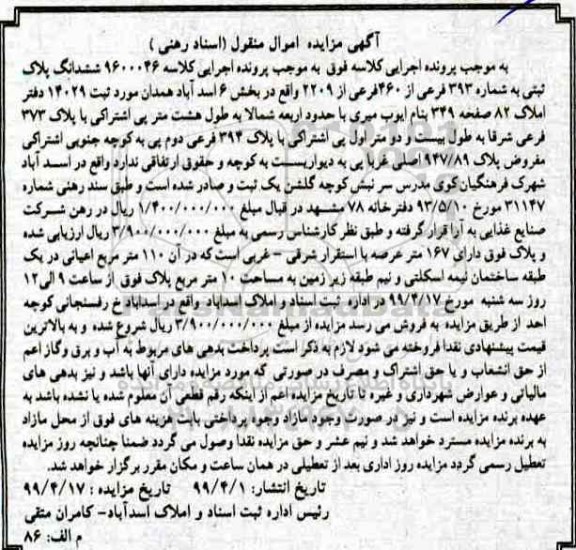 آگهی مزایده اموال منقول (اسناد رهنی)
به موجب پرونده اجرایی کلاسه فوق به موجب پرونده اجرایی کلاسه ۹۶۰۰۰۴۶ ششدانگ پلاک
ثبتی به شماره ۳۹۳ فرعی از ۴۶۰فرعی از ۲۲۰۹ واقع در بخش ۶ اسد آباد همدان مورد ثبت ۱۴۰۲۹ دفتر
املاک ۸۲ صفحه ۳۴۹ بنام ایوب میری با حدود اربعه شمالا به طول هشت متر پی اشتراکی با پلاک ۳۷۳
فرعی شرقا به طول بیست و دو متر اول پی اشتراکی با پلاک ۳۹۴ فرعی دوم پی به کوچه جنوبی اشتراکی
مفروض پلاک ۹۴۷/۸۹ اصلی غربا پی به دیواریست به کوچه و حقوق ارتفاقی ندارد واقع در اسد آباد
شهرک فرهنگیان کوی مدرس سر نبش کوچه گلشن یک ثبت و صادر شده است و طبق سند رهنی شماره
۳۱۱۴۷ مورخ ۹۳/۵/۱۰ دفترخانه ۷۸ مشهد در قبال مبلغ ۱/۴۰۰/۰۰۰/۰۰۰ ریال در رهن شرکت
صنایع غذایی به آرا قرار گرفته و طبق نظر کارشناس رسمی به مبلغ ۳/۹۰۰/۰۰۰/۰۰۰ ریال ارزیابی شده
و پلاک فوق دارای ۱۶۷ متر عرصه با استقرار شرقی - غربی است که در آن ۱۱۰ متر مربع اعیانی در یک
طبقه ساختمان نیمه اسکلتی و نیم طبقه زیر زمین به مساحت ۱۰ متر مربع پلاک فوق از ساعت ۹ الی ۱۲
روز سه شنبه مورخ ۹۹/۴/۱۷ در اداره ثبت اسناد و املاک اسداباد واقع در اسداباد خ رفسنجانی کوچه
احد از طریق مزایده به فروش می رسد مزایده از مبلغ ۳/۹۰۰/۰۰۰/۰۰۰ ریال شروع شده و به بالاترین
قیمت پیشنهادی نقدا فروخته می شود لازم به ذکر است پرداخت بدهی های مربوط به آب و برق وگاز اعم
از حق انشعاب و یا حق اشتراک و مصرف در صورتی که مورد مزایده دارای آنها باشد و نیز بدهی های
مالیاتی و عوارض شهرداری و غیره تا تاریخ مزایده اعم از اینکه رقم قطعی آن معلوم شده یا نشده باشد به
عهده برنده مزایده است و نیز در صورت وجوه مازاد وجوه پرداختی بابت هزینه های فوق از محل مازاد
به برنده مزایده مسترد خواهد شد و نیم عشر و حق مزایده نقدا وصول می گردد ضمنا چنانچه روز مزایده
تعطیل رسمی گردد مزایده روز اداری بعد از تعطیلی در همان ساعت و مکان مقرر برگزار خواهد شد.
تاریخ انتشار: ۹۹/۴/۱ تاریخ مزایده : ۹۹/۴/۱۷
رئیس اداره ثبت اسناد و املاک اسدآباد- کامران متقی
م الف: ۸۶